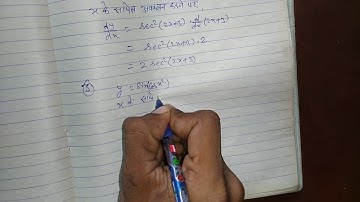 x के सापेक्ष अवकलन करने पर,
dy/dx = sec²(2x+3) d/dx (2x+3)
= sec²(2x+3)·2
= 2 sec²(2x+3)
(5) y = sin(cos x²)
x के सापे